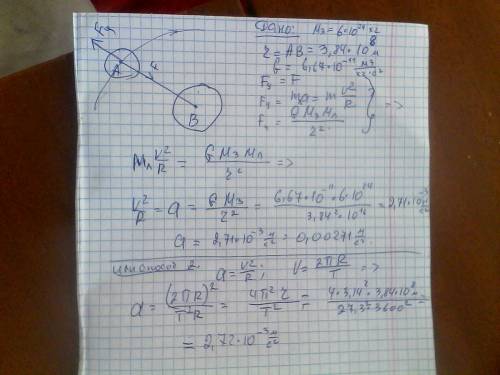 Дано: Mз = 6*10²⁴ кг
r = AB = 3,84*10⁸ м
G = 6,67*10⁻¹¹ м³/кг*с²
A
B
F = F
F = ma = m v²/R
F = G Mз Mл / r²
=>
Mл v²/R = G Mз Mл / r² =>
v²/R = a = G Mз / r² = 6,67*10⁻¹¹*6*10²⁴ / 3,84²*10¹⁶ = 2,71*10⁻³ м/с²
a = 2,71*10⁻³ м/с² = 0,00271 м/с².
или способ 2. a = v²/R; V = 2πR/T =>
a = (2πR)²/T²R = 4π² r/T² = 4*3,14²*3,84*10⁸ м / 27,3²*3600² =
= 2,72*10⁻³ м/с²